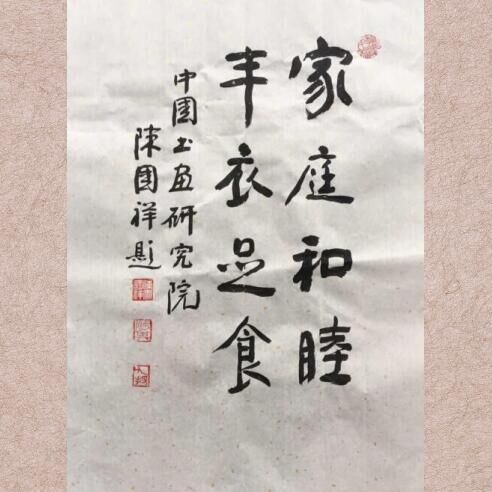 家庭和睦
丰衣足食
中国书画研究院
陳国祥題